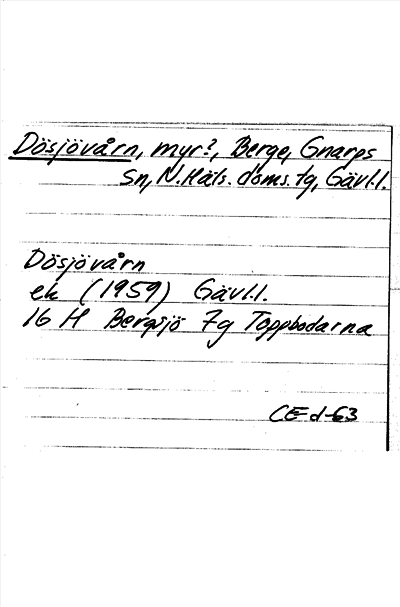 Dösjövårn, myr?, Berge, Gnarps
sn, N. Häls. doms. tg, Gävl.l.
Dösjövårn
ek (1959) Gävl.l.
16 H Bergsjö 7g Toppbodarna
CE d-63